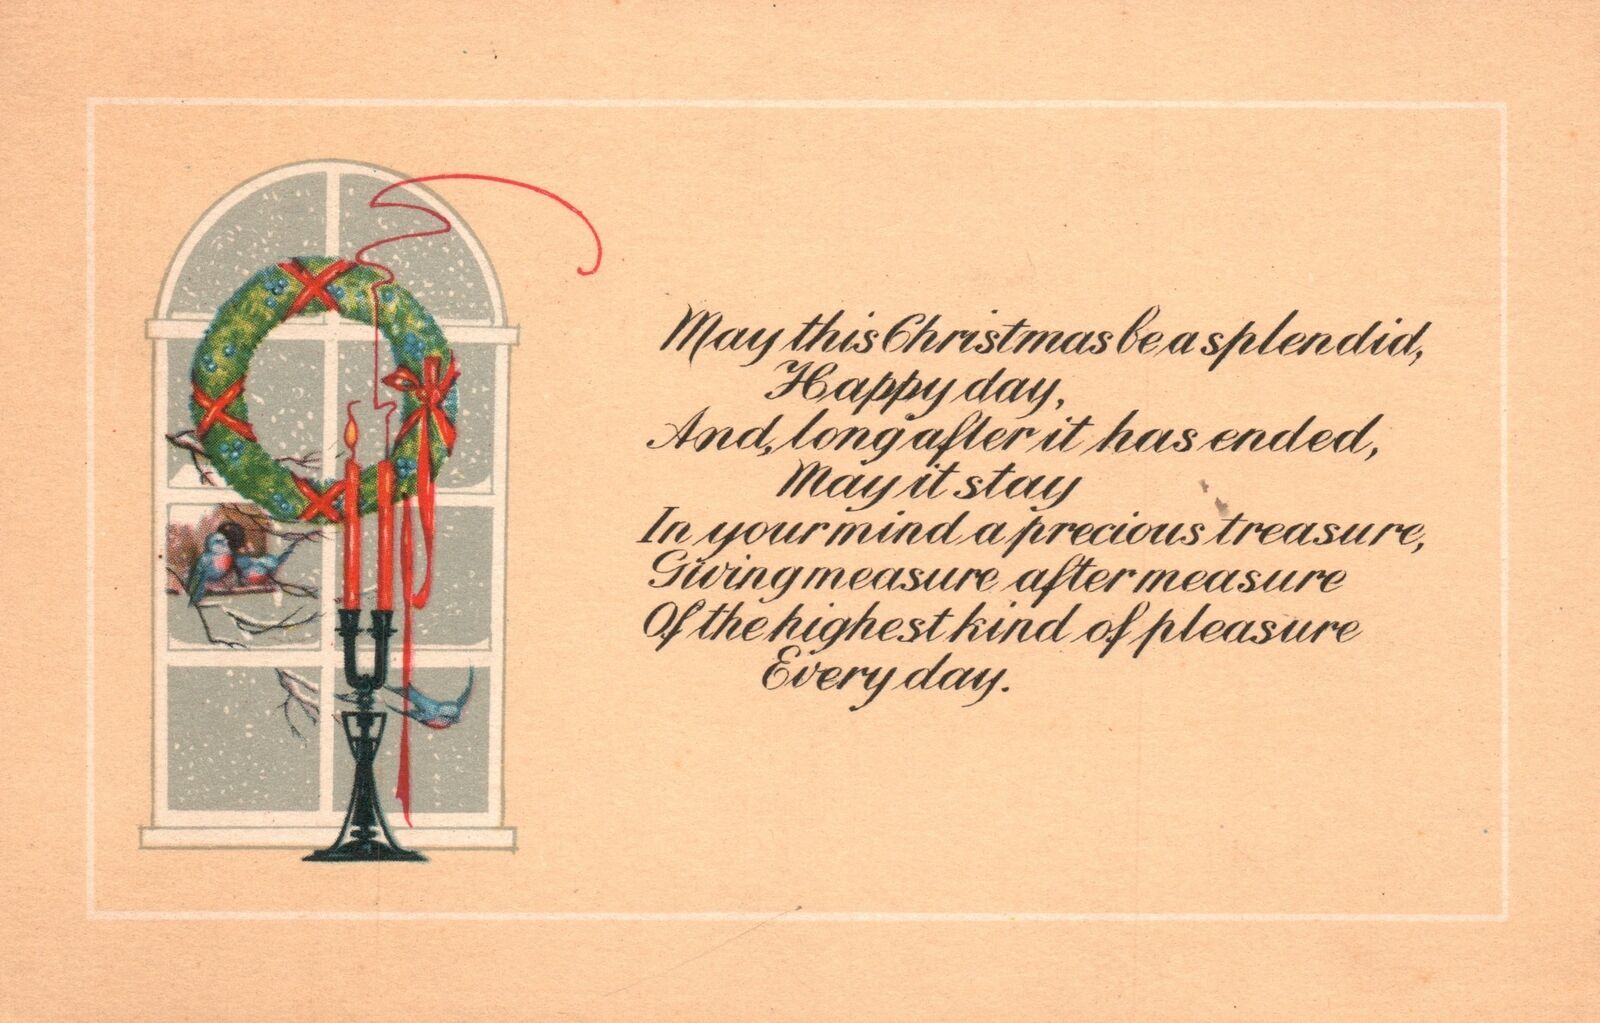 May this Christmas be a splendid,
Happy day,
And, long after it has ended,
May it stay
In your mind a precious treasure,
Giving measure after measure
Of the highest kind of pleasure
Every day.